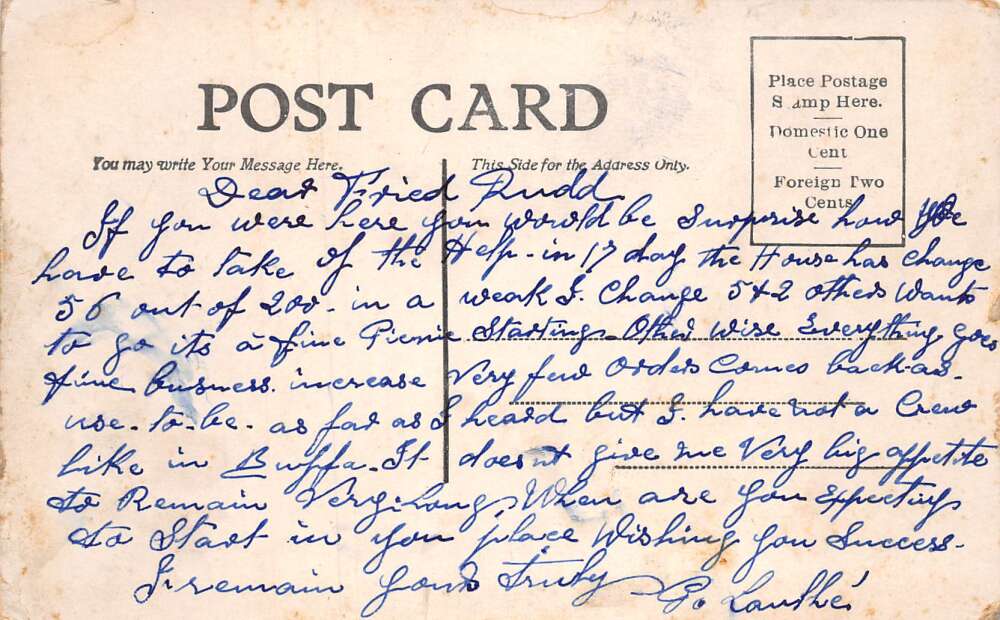 POST CARD
Place Postage
Stamp Here.
Domestic One
Cent
Foreign Two
Cents
You may write Your Message Here.
This Side for the Address Only.
Dear Fried Rudd
If you were here you would be surprise how
have to take of the Help - in 17 day the House has change
56 out of 200 - in a weak I. Change 5 & 2 others wants
to go its a fine Picnic Starting - Other wise Everything goes
fine busness. increase Very few Orders Comes back - as -
use - to - be - as far as I heard but I. have not a Crew
like in Buffa - It doesnt give me Very big appetite
to Remain Very - Long, When are you Expecting
to Start in your place Wishing you Success -
I remain yours Truly